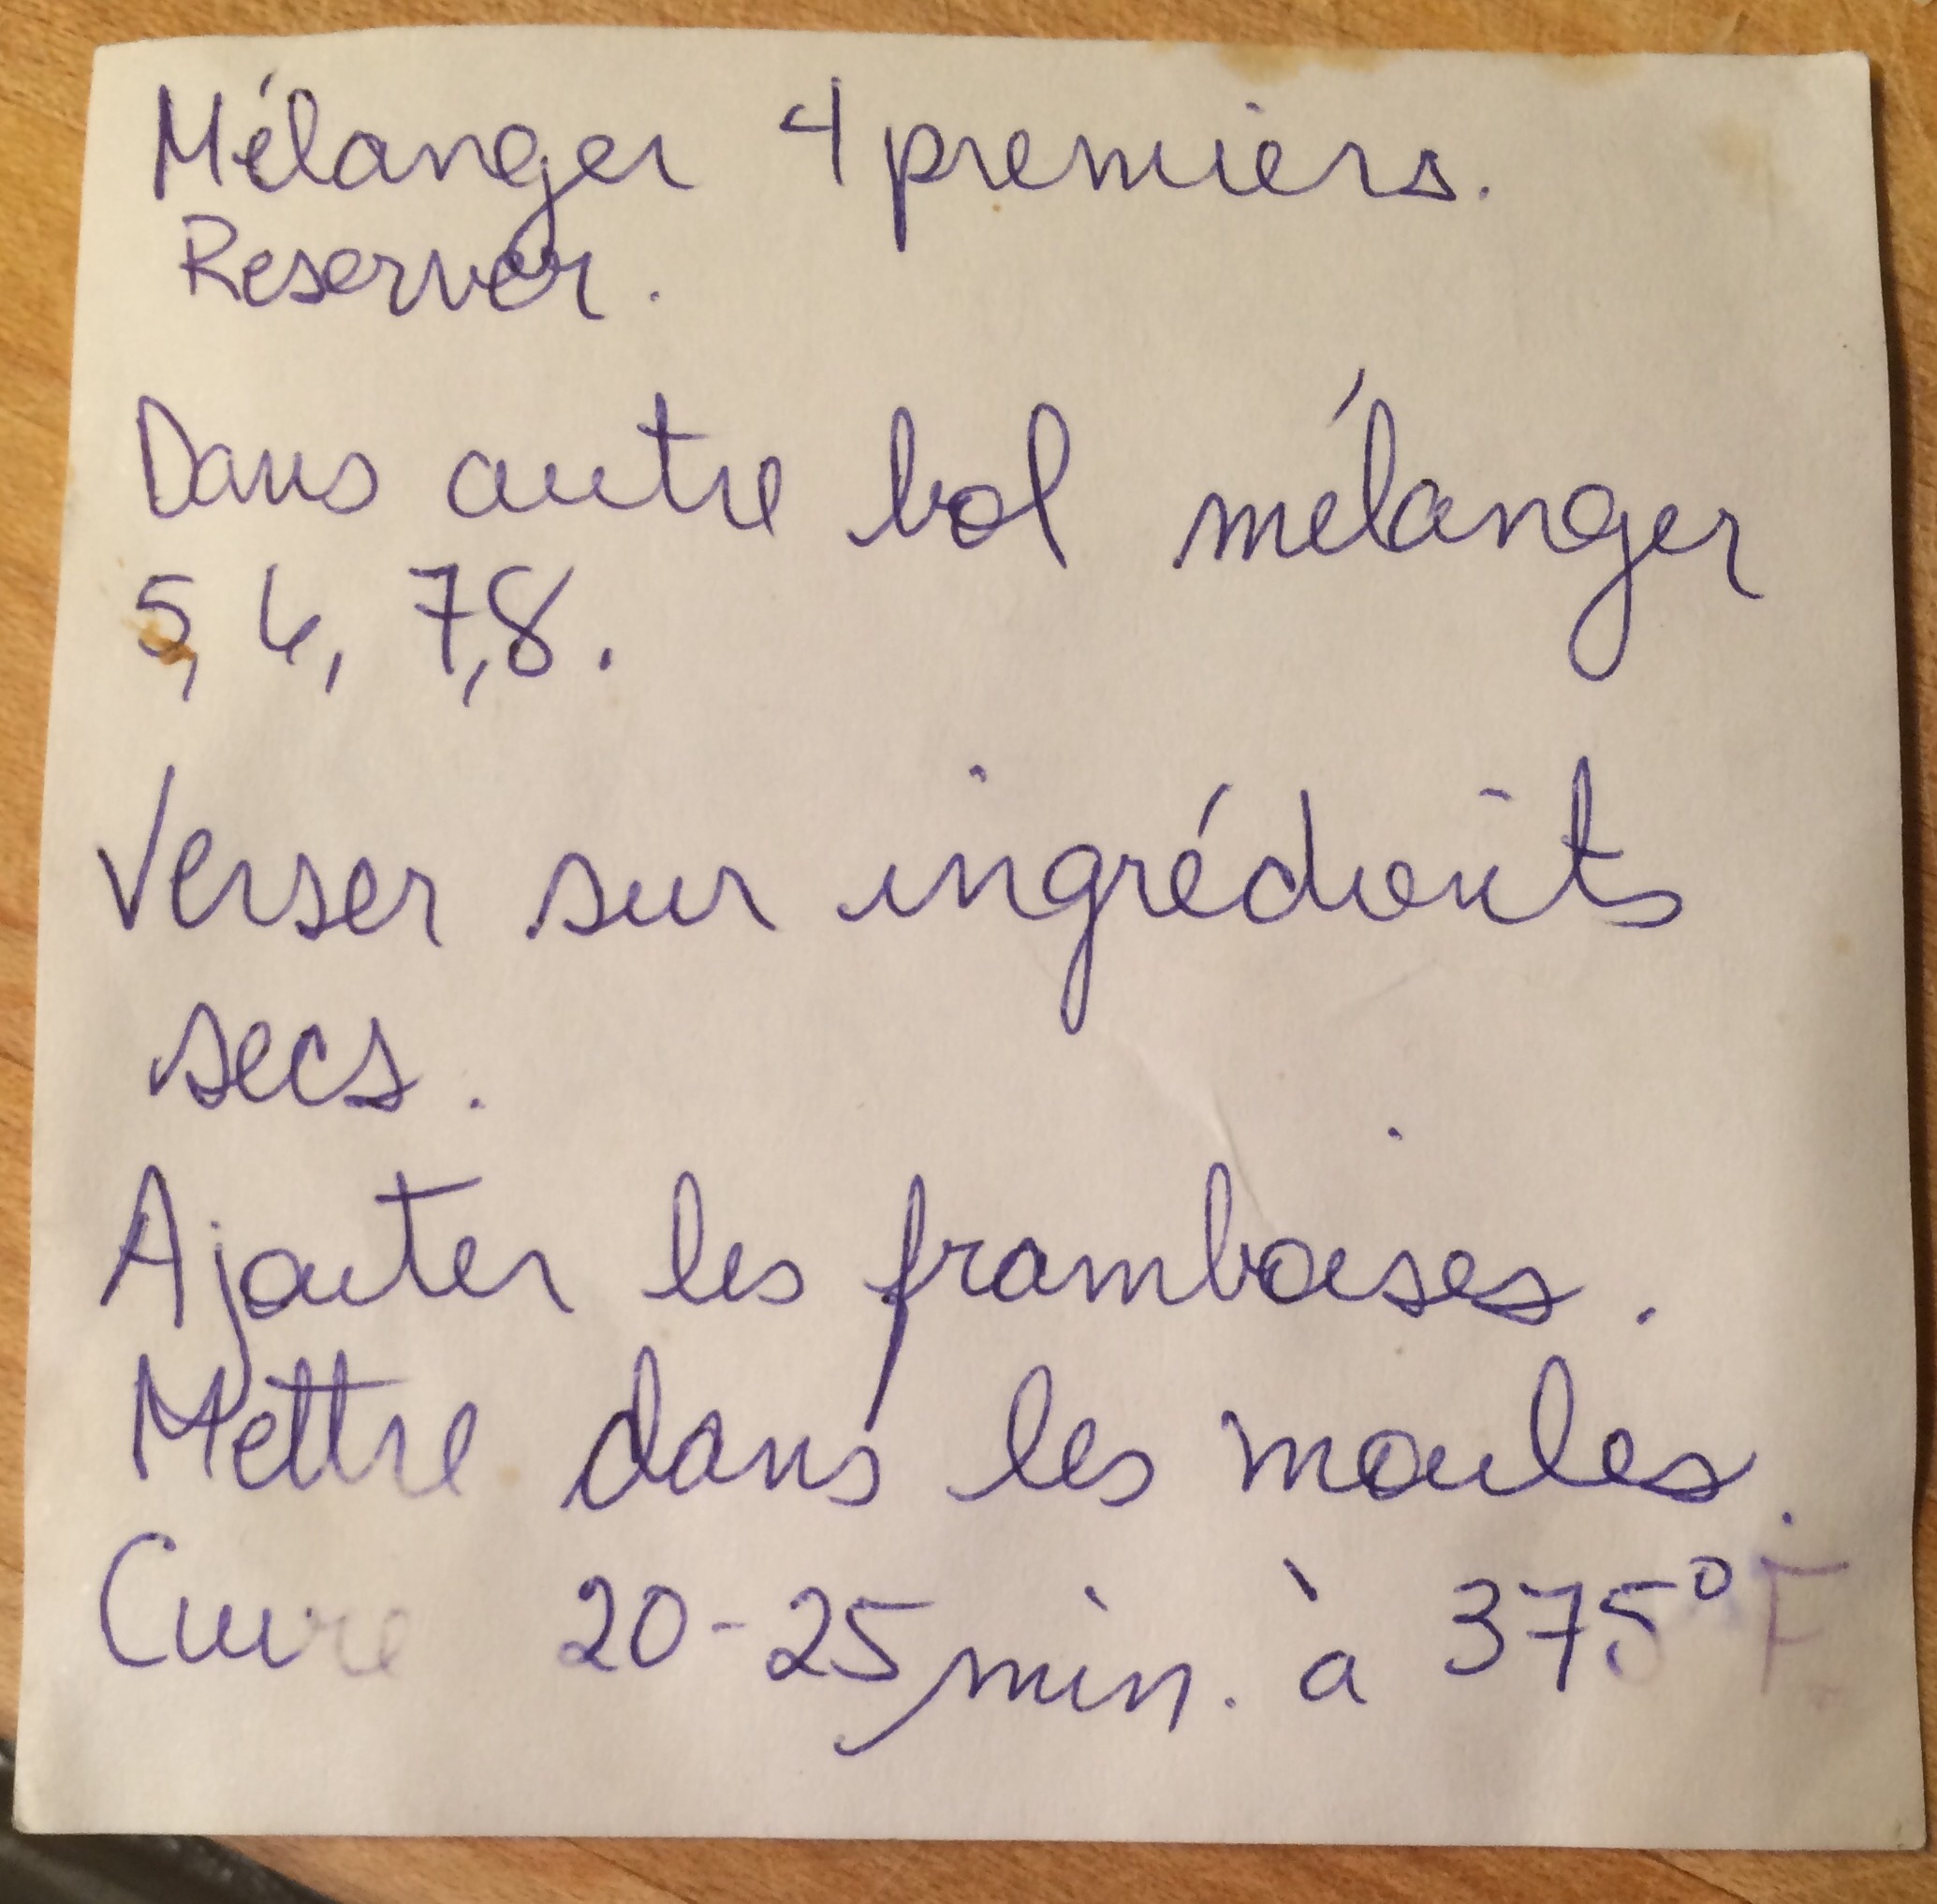 Mélanger 4 premiers.
Reserver.
Dans autre bol mélanger
5, 6, 7, 8.
Verser sur ingrédients
secs.
Ajouter les framboises.
Mettre dans les moules.
Cuire 20-25 min. à 375° F